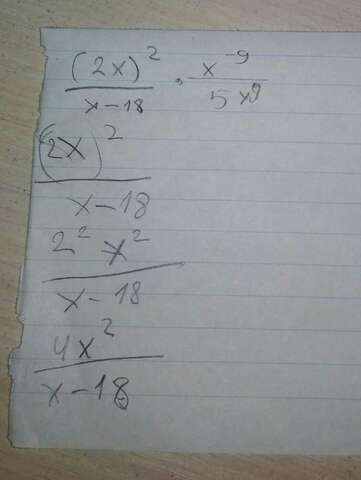 (2x)² / x-18 · x⁻⁹ / 5x⁹
(2x)² / x-18
2² x² / x-18
4x² / x-18